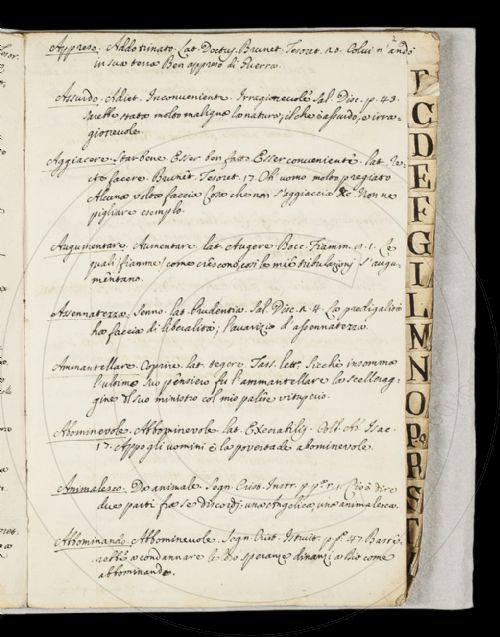 2
Appreso. Addotrinato. Lat. Doctus. Brunet. Tesoret. 20. Colui n'andò
in sua terra Ben appreso di Guerra.
Assurdo. Adiet. Inconueniente. Irragioneuole Sal. Disc. p. 43.
sarebbe stata molto maligna la natura, il che è assurdo, e irra-
gioneuole.
Aggiacere. Star bene Esser ben fatto Esser conueniente. lat.
facere. Brunet. Tesoret. 17. Oh uomo molto pregiato
Alcuna volta faccia Cosa che non s'aggiaccia &c Non ne
pigliare esemplo.
Augumentare. Aumentare. lat. Augere. Bocc. Fiamm. 1. Le
quali (fiamme) come crescono, così le mie tribulazioni s'augu-
mentano.
Assennatezza. Senno. lat. Prudentia. Sal. Disc. 2. 4. La prodigalità
ha faccia di liberalità; l'auarizia d'assennatezza.
Ammantellare. Coprire. lat. tegere. Tass. lett. Sicchè insomma
l'ultimo suo pensiero fu l'ammantellare la scellerag-
gine il suo ministro col mio palese vituperio.
Abominevole. Abbominevole. lat. Execrabilis. Coll. Ab. Isac.
17. Appo gli uomini è la pouertade abominevole.
Animalesco. Da animale. Segn. Crist. Instr. p. pª. 1. Cioè dire
due parti fra se discordi, una Angelica, una animalesca.
Abbominando. Abbomineuole. Segn. Crist. Istruit. p. pª. 47
a condannare le speranze dinanzi a Dio come
abbominande.
C
D
E
F
G
I
L
M
N
O
P
R
S
T